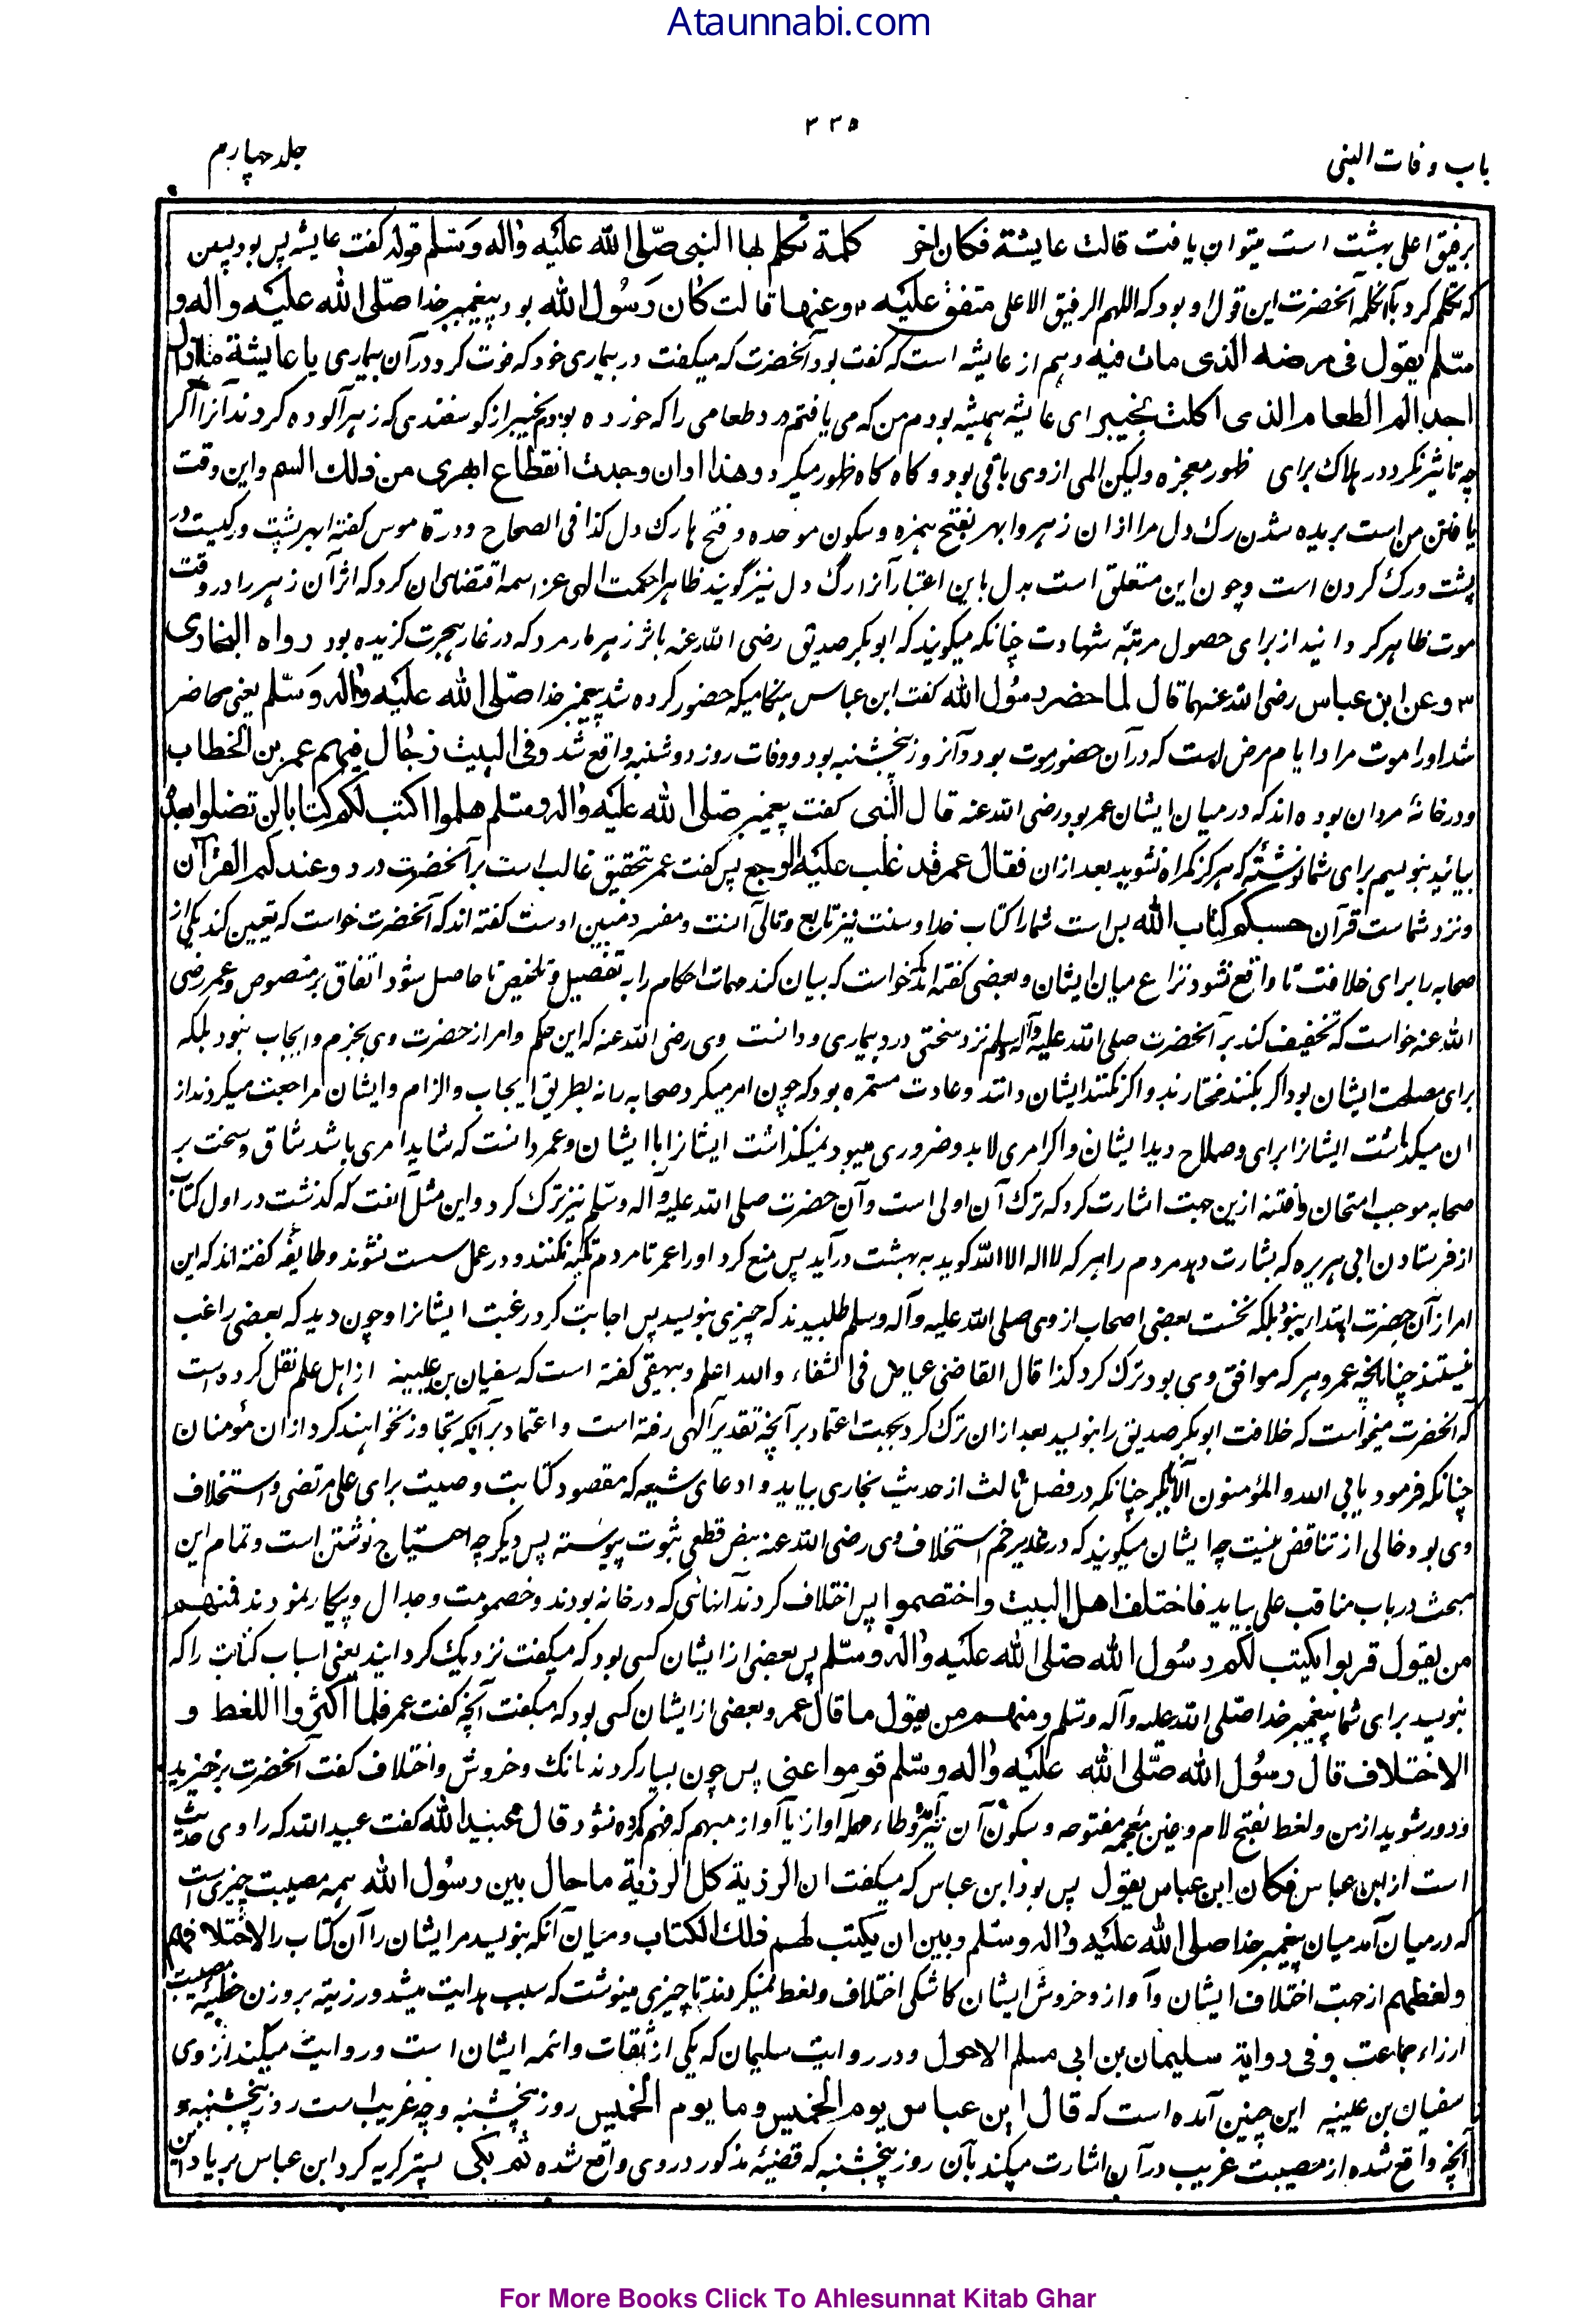 Ataunnabi.com
۳۳۵
باب وفات النبی
جلد چهارم
برفیق اعلی بهشت است میتوان یافت قالت عایشة فکان اخر کلمة تکلم بها النبی صلی الله علیه واله وسلم قوله گفت عایشه پس بود پسین
که تکلم کرد بآن کلمه آنحضرت این قول او بود که اللهم الرفیق الاعلی متفق علیه ۲ وعنها قالت کان رسول الله بود پیغمبر خدا صلی الله علیه واله و
سلم یقول فی مرضه الذی مات فیه وهم از عایشه است که گفت بود آنحضرت که میگفت در بیماری خود که فوت کرد در آن بیماری یا عایشة ما ازال
اجد الم الطعام الذی اکلت بخیبر ای عایشه همیشه بودم من که می یافتم درد طعامی را که خورده بودم بخیبر از گوسفندی که زهر آلوده کردند آنرا اگر
چه تاثیر نکرد در هلاک برای ظهور معجزه ولیکن المی از وی باقی بود و گاه گاه ظهور میکرد وهذا اوان وجدت انقطاع ابهری من ذلک السم واین وقت
یافتن من است بریده شدن رگ دل مرا از آن زهر وابهر بفتح همزه وسکون موحده وفتح ها رگ دل کذا فی الصحاح ودر قاموس گفته ابهر پشت ورگیست در
پشت ورگ گردن است وچون این متعلق است بدل باین اعتبار آنرا رگ دل نیز گویند ظاهرا حکمت الهی عز اسمه اقتضای آن کرد که اثر آن زهر را در وقت
موت ظاهر گردانید از برای حصول مرتبهٔ شهادت چنانکه میگویند که ابوبکر صدیق رضی الله عنه باثر زهر مار مرد که در غار هجرت گزیده بود رواه البخاری
۳ وعن ابن عباس رضی الله عنهما قال لما حضر رسول الله گفت ابن عباس هنگامیکه حضور کرده شد پیغمبر خدا صلی الله علیه واله وسلم یعنی حاضر
شد او را موت مراد ایام مرض است که در آن حضور موت بود وآنروز پنجشنبه بود ووفات روز دوشنبه واقع شد وفی البیت رجال فیهم عمر بن الخطاب
ودر خانه مردان بوده اند که در میان ایشان عمر بود رضی الله عنه قال النبی گفت پیغمبر صلی الله علیه واله وسلم هلموا اکتب لکم کتابا لن تضلوا بعده
بیائید بنویسم برای شما نوشتهٔ که هرگز گمراه نشوید بعد از آن فقال عمر قد غلب علیه الوجع پس گفت عمر بتحقیق غالب است بر آنحضرت درد وعندکم القرآن
ونزد شماست قرآن حسبکم کتاب الله بس است شما را کتاب خدا وسنت نیز تابع وتالی آنست ومفسر ومبین اوست گفته اند که آنحضرت خواست که تعیین کند یکی از
صحابه را برای خلافت تا واقع نشود نزاع میان ایشان وبعضی گفته اند که خواست که بیان کند مهمات احکام را به تفصیل وتلخیص تا حاصل شود اتفاق بر منصوص وعمر رضی
الله عنه خواست که تخفیف کند بر آنحضرت صلی الله علیه وآله وسلم نزد سختی درد بیماری ودانست وی رضی الله عنه که این حکم وامر از حضرت وی بجزم وایجاب نبود بلکه
برای مصلحت ایشان بود اگر بکنند مختارند واگر نکنند ایشان دانند وعادت مستمره بود که چون امر میکرد صحابه را نه بطریق ایجاب والزام وایشان مراجعت میکردند از
ان میگذاشت ایشانرا برای وصلاح دید ایشان واگر امری لابد وضروری میبود نمیگذاشت ایشانرا با ایشان وعمر دانست که شاید امری باشد شاق وسخت بر
صحابه موجب امتحان وفتنه ازین جهت اشارت کرد که ترک آن اولی است وآن حضرت صلی الله علیه وآله وسلم نیز ترک کرد واین مثل آنست که گذشت در اول کتاب
از فرستادن ابی هریره که بشارت دهد مردم را هر که لا اله الا الله گوید به بهشت درآید پس منع کرد او را عمر تا مردم تکیه نکنند ودر عمل سست نشوند وطایفه گفته اند که این
امر از آن حضرت ابتداء نبود بلکه نخست بعضی اصحاب از وی صلی الله علیه وآله وسلم طلبیدند که چیزی بنویسید پس اجابت کرد رغبت ایشانرا وچون دید که بعضی راغب
نیستند چنانچه عمر وهر که موافق وی بود ترک کرد کذا قال القاضی عیاض فی الشفاء والله اعلم وبیهقی گفته است که سفیان بن عیینه از اهل علم نقل کرده است
که آنحضرت میخواست که خلافت ابوبکر صدیق را بنویسد بعد از آن ترک کرد بجهت اعتماد بر آنچه تقدیر الهی رفته است واعتماد بر آنکه تجاوز نخواهند کرد از آن مؤمنان
چنانکه فرمود یابی الله والمؤمنون الا ابابکر چنانکه در فصل ثالث از حدیث بخاری بیاید وادعای شیعه که مقصود کتابت وصیت برای علی مرتضی واستخلاف
وی بود خالی از تناقض نیست چه ایشان میگویند که در غدیر خم استخلاف وی رضی الله عنه بنص قطعی ثبوت پیوسته پس دیگر چه احتیاج نوشتن است وتمام این
مبحث در باب مناقب علی بیاید فاختلف اهل البیت واختصموا پس اختلاف کردند آنهائی که در خانه بودند وخصومت وجدال وپیکار نمودند فمنهم
من یقول قربوا یکتب لکم رسول الله صلی الله علیه واله وسلم پس بعضی از ایشان کسی بود که میگفت نزدیک گردانید یعنی اسباب کتابت را که
بنویسد برای شما پیغمبر خدا صلی الله علیه وآله وسلم ومنهم من یقول ما قال عمر وبعضی از ایشان کسی بود که میگفت آنچه گفت عمر فلما اکثروا اللغط و
الاختلاف قال رسول الله صلی الله علیه واله وسلم قوموا عنی پس چون بسیار کردند بانگ وخروش واختلاف گفت آنحضرت برخیزید
ودور شوید از من ولغط بفتح لام وغین معجمه مفتوحه وسکون آن نیز آمده وطاء مهمله آواز یا آواز مبهم که فهم کرده نشود قال عبیدالله گفت عبیدالله که راوی حدیث
است از ابن عباس فکان ابن عباس یقول پس بود ابن عباس که میگفت ان الرزیة کل الرزیة ما حال بین رسول الله همه مصیبت چیزی است
که در میان آمد میان پیغمبر خدا صلی الله علیه واله وسلم وبین ان یکتب لهم ذلک الکتاب ومیان آنکه بنویسد مر ایشان را آن کتاب را لاختلافهم
ولغطهم از جهت اختلاف ایشان وآواز وخروش ایشان کاشکی اختلاف ولغط نمیکردند تا چیزی مینوشت که سبب هدایت میشد ورزیة بر وزن خطیئه مصیبت
ارزاء جماعت وفی روایة سلیمان بن ابی مسلم الاحول ودر روایت سلیمان که یکی از ثقات وائمه ایشان است وروایت میکند از وی
سفیان بن عیینه این چنین آمده است که قال ابن عباس یوم الخمیس وما یوم الخمیس روز پنجشنبه وچه غریب است روز پنجشنبه و
آنچه واقع شده از مصیبت غریب در آن اشارت میکند بآن روز پنجشنبه که قضیهٔ مذکور در وی واقع شده ثم بکی پستر گریه کرد ابن عباس بر یاد این
For More Books Click To Ahlesunnat Kitab Ghar